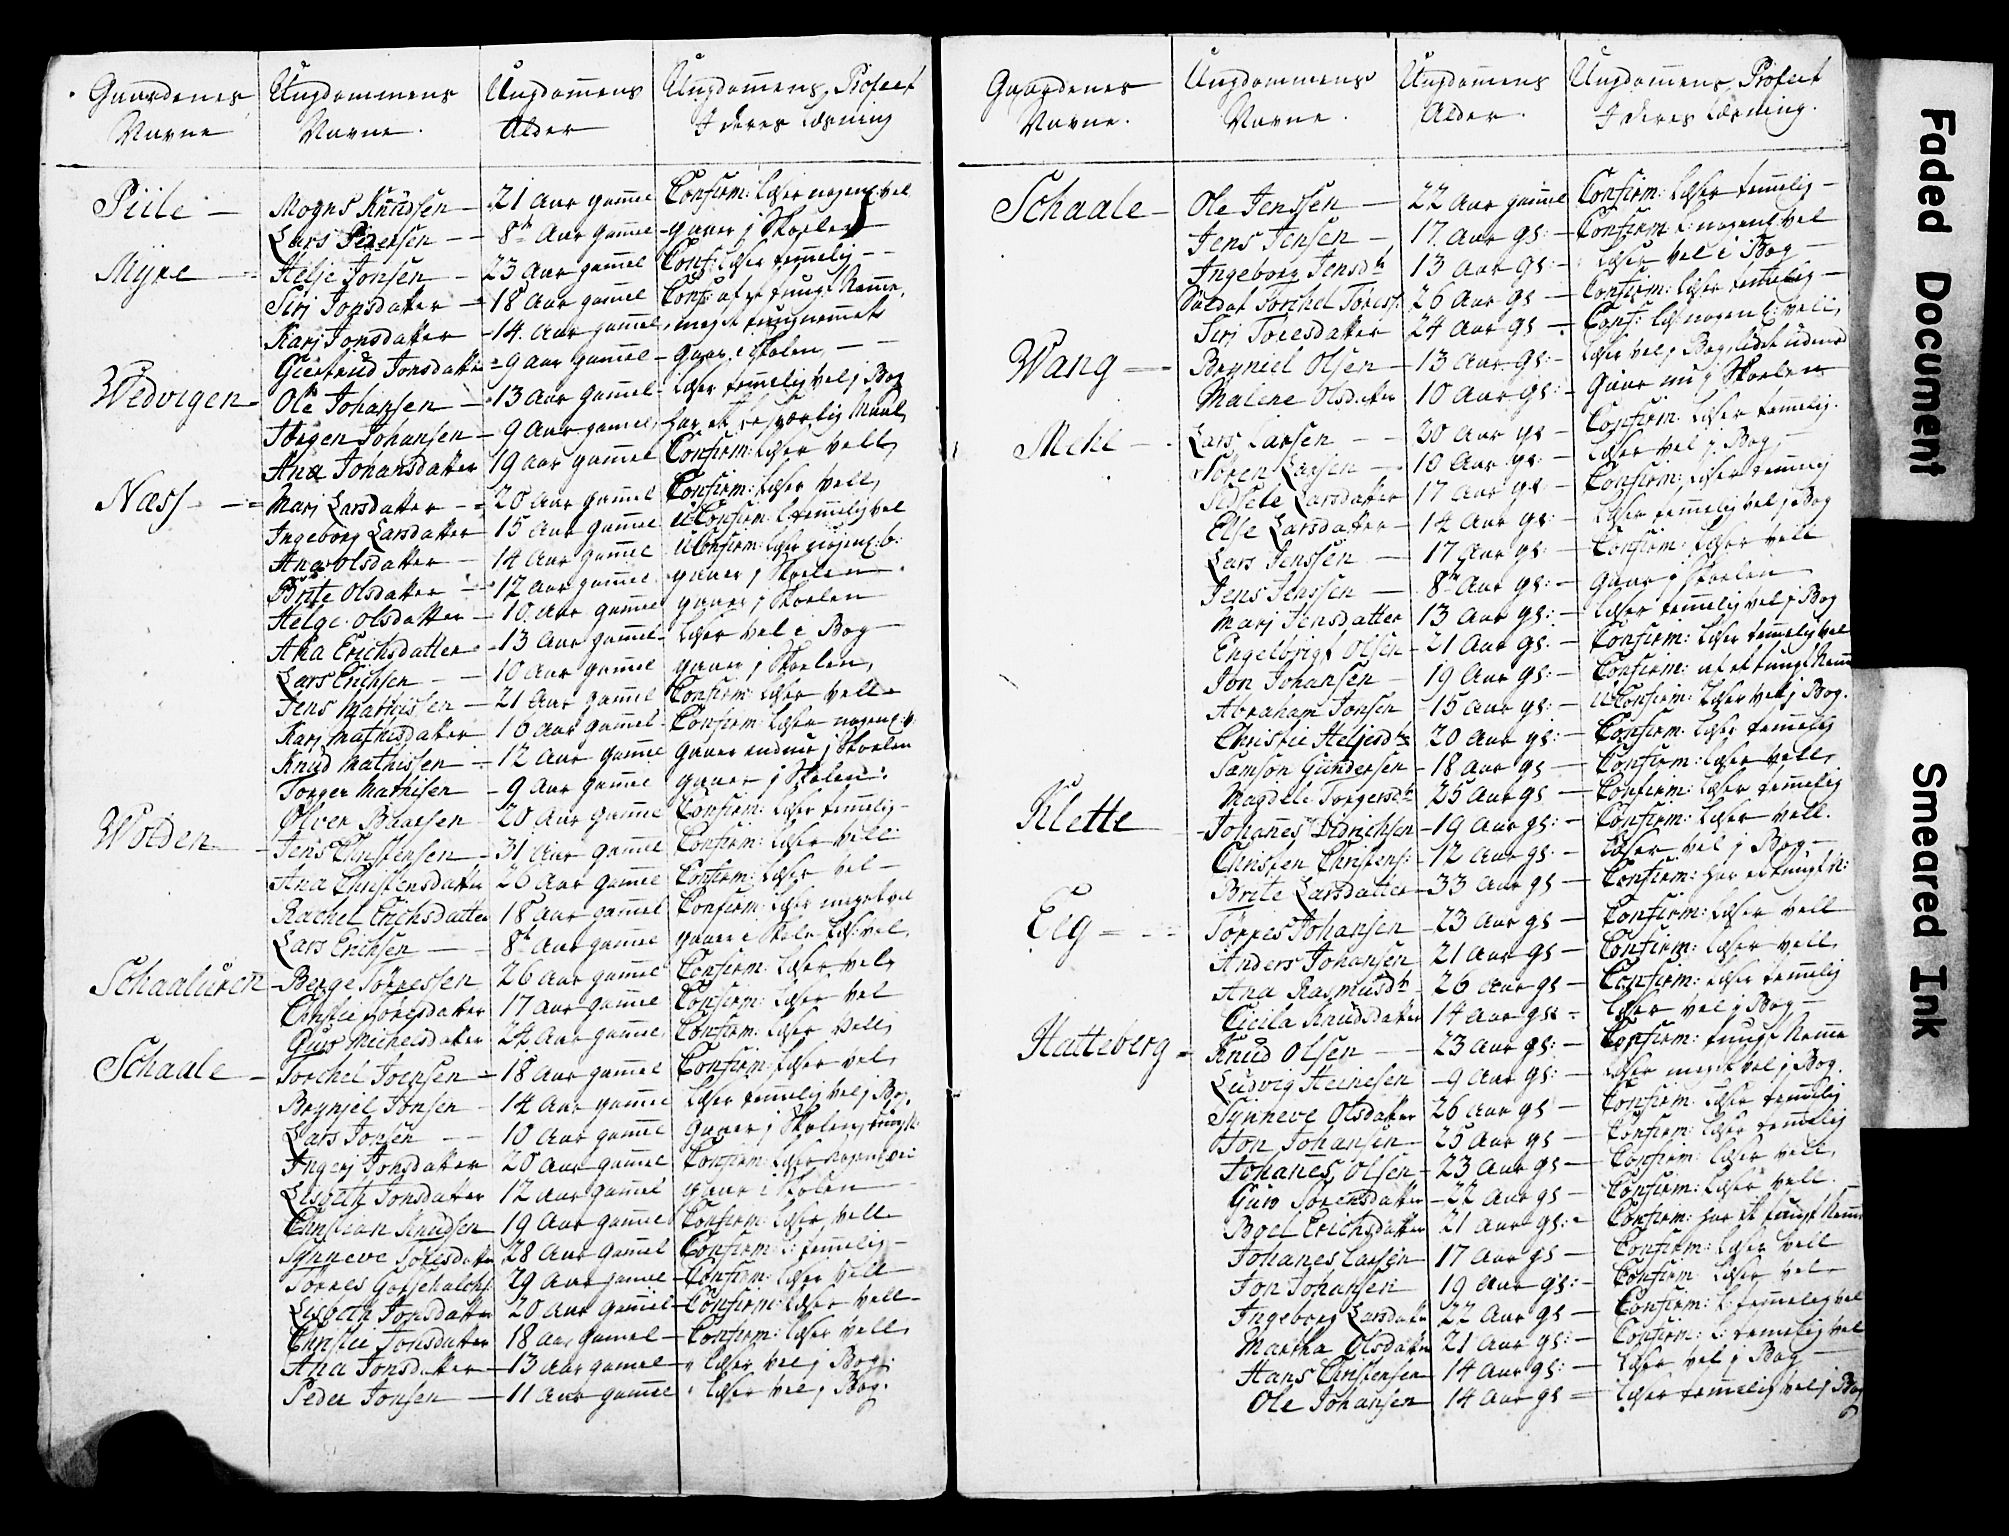 Gaardenes Ungdommens Ungdomens Ungdomens Profect
Navne Navne. Alder I deres Læsning
Piile — Mogns Knudsen — 21 Aar gamel Confirm: læser nogenl. vel
Lars Pedersen — 8te Aar gamel — gaaer j Skoelen
Myre — Helje Jonsen — 23 Aar gamel Conf: læser temelig —
Siri Jonsdatter — 18 Aar gamel Conf: af et tungt Neme,
Kari Jonsdatter — 14. Aar gamel, meget tungnemmet
Giertrud Jonsdatter — 9 Aar gamel — gaar i Skolen, —
Wedvigen — Ole Johansen — 13 Aar gamel — læser temelig vel j Bog
Jørgen Johansen — 9 Aar gamel, har et besværlig Maal,
Ana Johansdatter 19 aar gamel Confirm: læser vell,
Næss — Mari Larsdatter — 20 Aar gamel Confirm: læser vell,
Ingeborg Larsdatter 15 Aar gamel UConfirm: l. temelig vel
Ana Olsdatter — 14 Aar gamel UConfirm: læser nogenl: b:
Brite Olsdatter — 12 Aar gamel gaaer j Skoelen
Helge Olsdatter — 10. Aar gamel gaaer j Skoelen
Ana Erichsdatter — 13 Aar gamel — læser vel i Bog —
Lars Erichsen — 10 Aar gamel gaaer j Skoelen,
Jens Mathissen — 21 Aar gamel Confirm: læser vell
Kari Mathisdatter 16 Aar gamel — Confirm: læser nogenl: v:
Knud Mathissen — 12 Aar gamel gaaer endnu j Skoelen
Torger Mathisen — 9 Aar gamel gaaer j Skolen:
Olver Baarsen 20 Aar gamel Confirm: læser temelig —
Wolden — Jens Christensen — 31 Aar gamel Confirm: læser vell:
Ana Christensdatter 26 Aar gamel Confirm: læser vel —
Rachel Erichsdatter 18 Aar gamel Confirm: læser meget vel
Lars Erichsen — 8te Aar gamel gaaer i Skole læs: vel,
Schaaluren — Berge Torressen 26 Aar gamel Confirm: læser vel,
Christie Torresdatter 17 Aar gamel Confirm: læser vel
Guro Michelsdatter 24 Aar gamel Confirm: læser vell,
Schaale — Torchel Joensen — 18 Aar gamel Confirm: læser vel,
Brynjel Jonsen — 14 Aar gamel læser temelig vel j Bog,
Lars Jonsen — 10 Aar gamel gaaer j Skolen, tung N:
Ingerj Jonsdatter 20 Aar gamel Confirm: læser nogenl vel
Lisbeth Jonsdatter 12 Aar gamel gaaer i Skolen —
Christian Knudsen 19 Aar gamel Confirm: læser, vell
Synneve Torresdatter 28 Aar gamel Confirm: l: temelig —
Torres 29 Aar gamel — Confirm: læser vell
Lisbeth Jonsdatter 20 Aar gamel — Confirm: læser vell —
Christie Jonsdatter 18 Aar gamel — Confirm: læser vell,
Ana Jonsdatter — 13 Aar gamel — læser vel j Bog:
Peder Jonsen — 11 Aar gamel læser vel j Bog:
Gaardenes Ungdommens Ungdomens Ungdomens Profect
Navne. Navne. Alder. I deres Læsning.
Schaale — Ole Jenssen — 22 Aar gamel Confirm: læser temelig —
Jens Jensen — 17. Aar gl: — Confirm l: nogenl vel
Ingeborg Jensdtr 13 Aar gl: — læser vel i Bog —
Soldat Torchel Torress: 26 Aar gl — Confirm: læser temelig —
Siri Torresdatter 24 Aar gl — Conf: læs nogenl: vell,
Wang — Brynield Olsen — 13 Aar gl: — læser vel j Bog, lidet udenad
Malene Olsdatter 10 Aar gl: — Gaaer nu j Skoelen
Mehl — Lars Larsen — 30 Aar gl — Confirm: læser temelig.
Sören Larsen — 10 Aar gl: — læser vel j Bog, —
Sidsele Larsdatter 17 Aar gl: — Confirm: læser temelig
Else Larsdatter — 14 Aar gl: — læser temelig vel j Bog
Lars Jenssen — 17 Aar gl: — Confirm: læser vell
Jens Jenssen — 8te Aar gl: — gaar j Skoelen
Mari Jensdatter 13 Aar gl: — læser temelig vel j Bog
Engelbrigt Olsen — 21 Aar gl: — Confirm: læser temelig vel
Jon Johansen — 19 Aar gl: — Confirm: af et tungt Nem
Abraham Jonsen — 15 Aar gl: — UConfirm: læser vel j Bog.
Christie Heljesdtr 20 Aar gl: — Confirm: læser temelig
Samson Gundersen — 18 Aar gl — Confirm: læser vell,
Magdele Torgersdtr 25 Aar gl — Confirm: læser temelig
Klette — Johanes Didrichsen — 19 Aar gl: — Confirm: læser vell.
Christen Christens: — 12 Aar gl: — læser vel j Bog, —
Brite Larsdatter — 33 Aar gl — Confirm: har et tungt N:
Eeg — Torres Johansen — 23 Aar gl — Confirm: læser vell
Anders Johansen 21 Aar gl — Confirm: læser vell,
Ana Rasmusdtr — 26 Aar gl — Confirm: læser temelig
Cicila Knudsdatter 14 Aar gl: — læser vel j Bog —
Hatteberg — Knud Olsen — 23 Aar gl: — Confirm: tungt Neme
Ludvig Heinesen — 9 Aar gl: — læser meget vel j Bog.
Synneve Olsdatter 26 Aar gl — Confirm: læser temelig
Jon Johansen — 25 Aar gl — Confirm: læser temelig
Johanes Olsen — 23 Aar gl — Confirm: læser vell,
Guro Sörensdatter — 22 Aar gl — Confirm: læser vell.
Boel Erichsdatter 21 Aar gl: — Confirm: har et tungt Neme
Johanes Larsen 17 Aar gl — Confirm: læser vell
Jon Johansen 19 Aar gl: — Confirm: læser vel —
Ingeborg Larsdatter 22 Aar gl — Confirm: l: temelig vel
Martha Olsdatter 21 Aar gl: — Confirm: l: temelig vel
Hans Christensen 14 Aar gl: — læser vel j Bog —
Ole Johansen 14 Aar gl — læser temelig vel j Bog
Faded Document
Smeared Ink